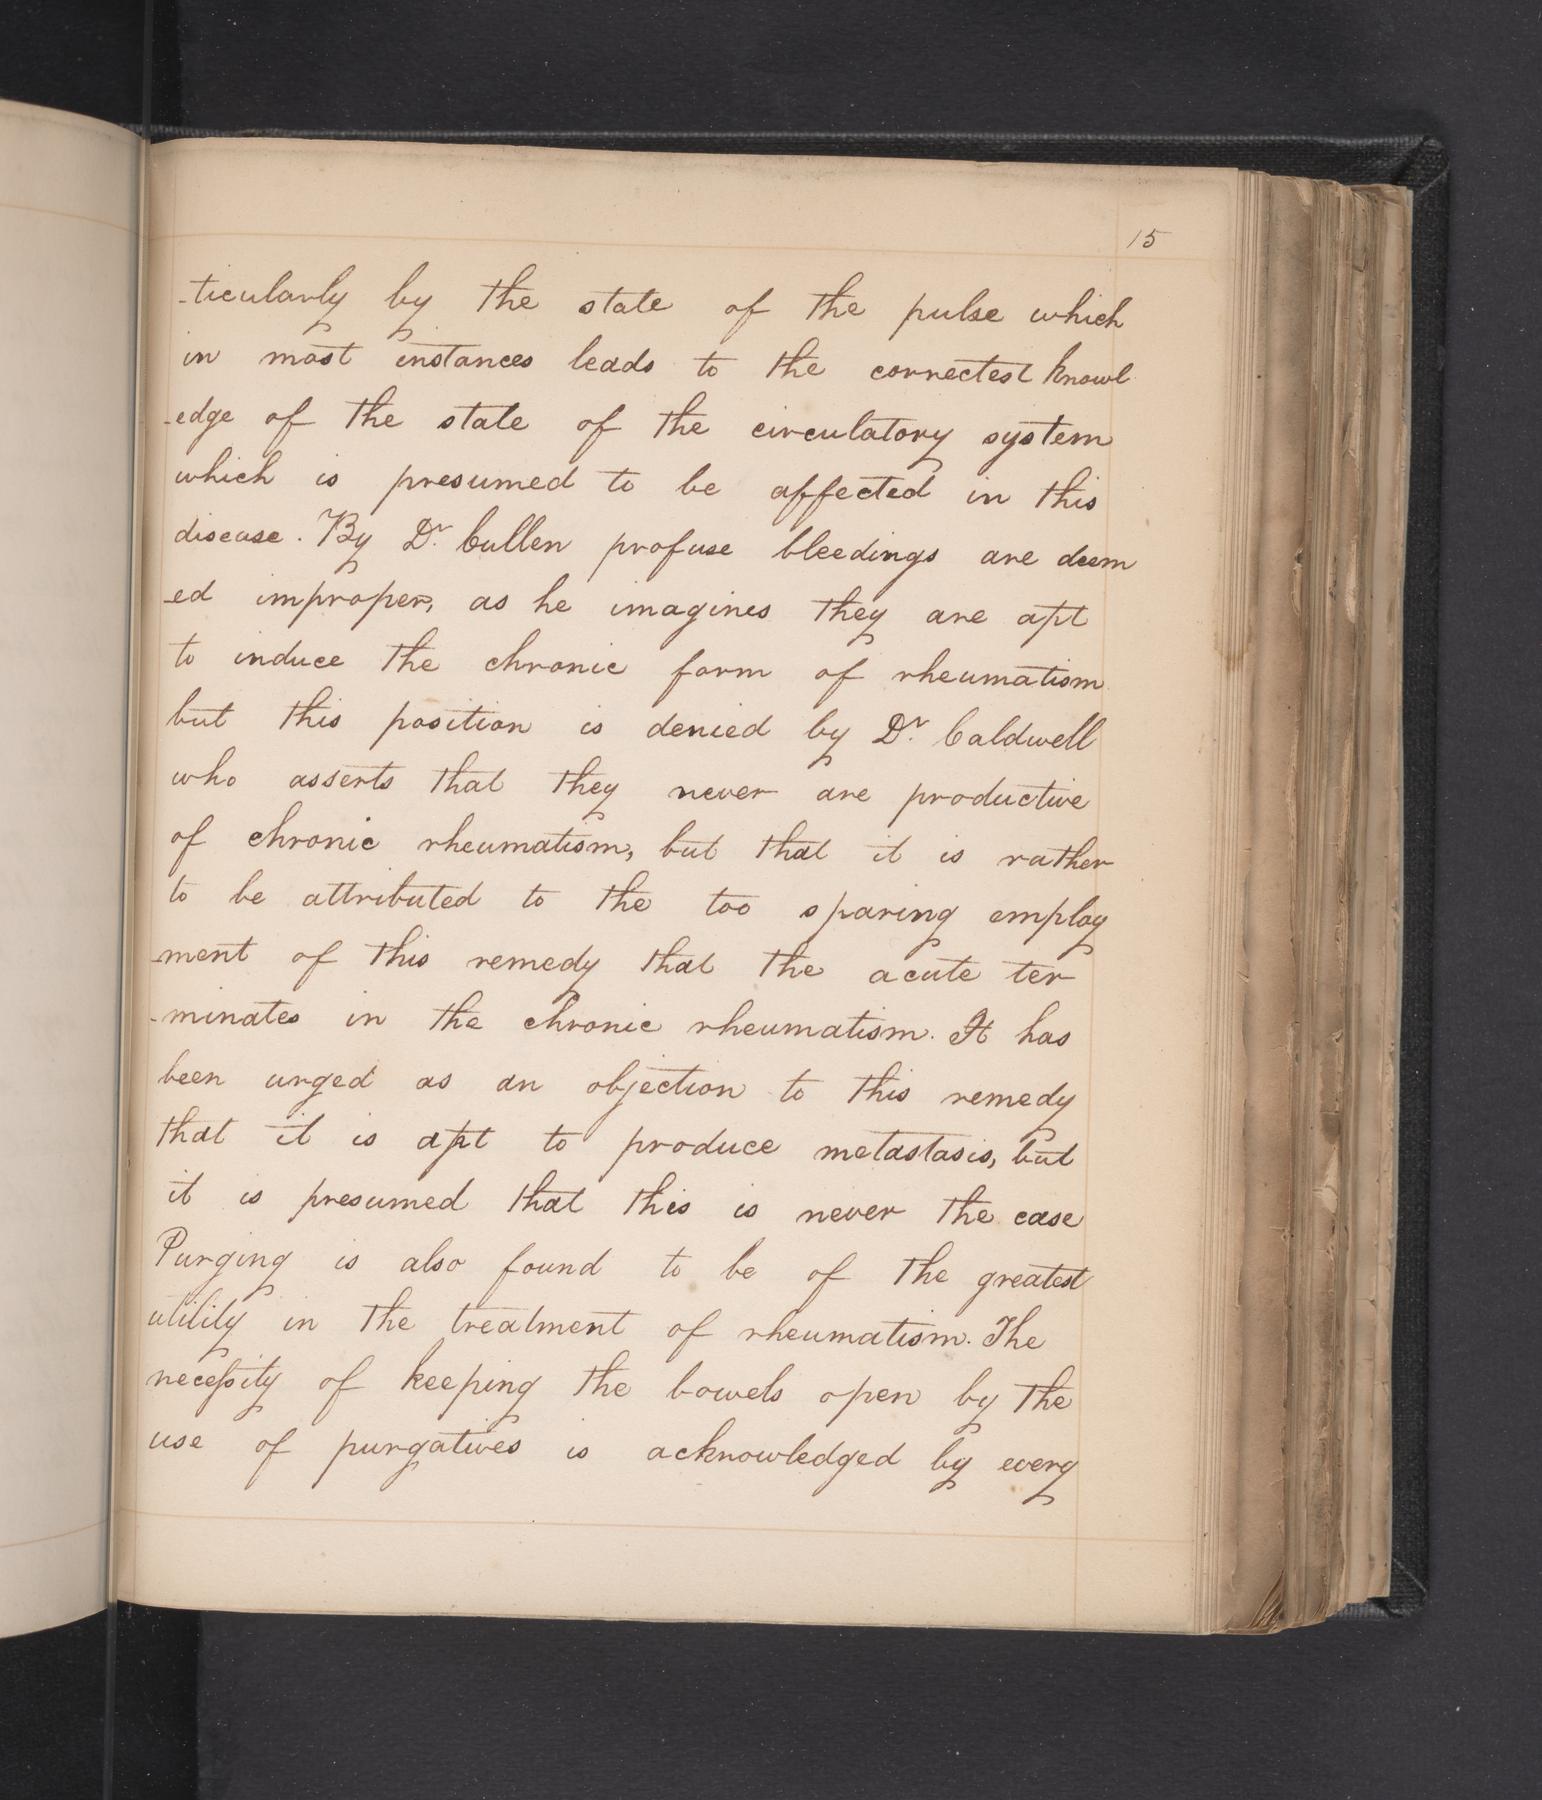 15
-ticularly by the state of the pulse which
in most instances leads to the correctest knowl
-edge of the state of the circulatory system
which is presumed to be affected in this
disease. By Dr. Cullen profuse bleedings are deem
-ed improper, as he imagines they are apt
to induce the chronic form of rheumatism
but this position is denied by Dr. Caldwell
who asserts that they never are productive
of chronic rheumatism, but that it is rather
to be attributed to the too sparing employ
-ment of this remedy that the acute ter
-minates in the chronic rheumatism. It has
been urged as an objection to this remedy
that it is apt to produce metastasis, but
it is presumed that this is never the case
Purging is also found to be of the greatest
utility in the treatment of rheumatism. The
neceſsity of keeping the bowels open by the
use of purgatives is acknowledged by every